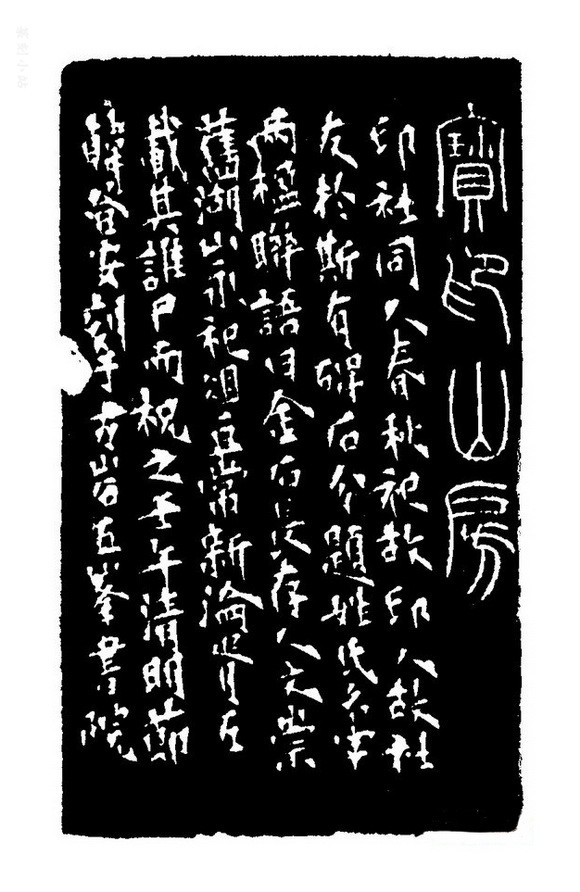 寶印山房
印社同人春秋祀故印人故社
友於斯有碑石分題姓氏名字
兩楹聯語曰金石長存人文崇
舊湖山永祀俎豆常新淪
載其誰尸而祝之壬午清明節
刻于方岩五峯書院